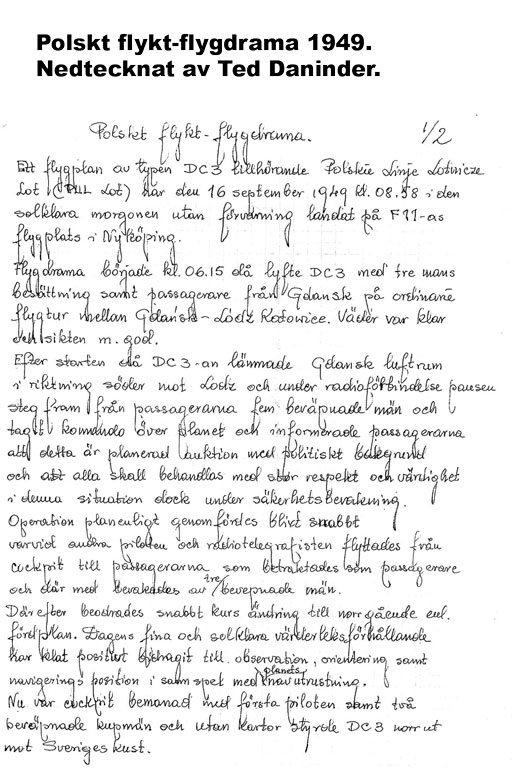 Polskt flykt-flygdrama 1949.
Nedtecknat av Ted Daninder.
Polsket flykt-flygdrama. 1/2
Ett flygplan av typen DC3 tillhörande Polskie Linje Lotnicze
Lot (PLL Lot) har den 16 september 1949 kl. 08.58 i den
solklara morgonen utan förvarning landat på F11-as
flygplats i Nyköping.
Flygdrama började kl. 06.15 då lyfte DC3 med tre mans
besättning samt passagerare från Gdansk på ordinarie
flygtur mellan Gdańsk-Lódź Katowice. Väder var klar
och sikten m. god.
Efter starten då DC3-an lämnade Gdansk luftrum
i riktning söder mot Lodz och under radioförbindelse pausen
steg fram från passagerarna fem beväpnade män och
tagit komando över planet och informerade passagerarna
att detta är planerad auktion med politiskt bakgrund
och att alla skall behandlas med stor respekt och värdighet
i denna situation dock under säkerhetsbevakning.
Operation planenligt genomfördes blixt snabbt
varvid andra piloten och radiotelegrafisten flyttades från
cockpit till passagerarna som betraktades som passagerare
och där med bevakades av tre bevepnade män.
Därefter beodrades snabbt kurs ändring till norrgående enl.
färdplan. Dagens fina och solklara väderleksförhållande
har klat positivt bidragit till observation, orientering samt
navigerings position i samspel med planets utrustning.
Nu var cockpit bemanad med första piloten samt två
beväpnade kupmän och utan kartor styrde DC3 norrut
mot Sveriges kust.